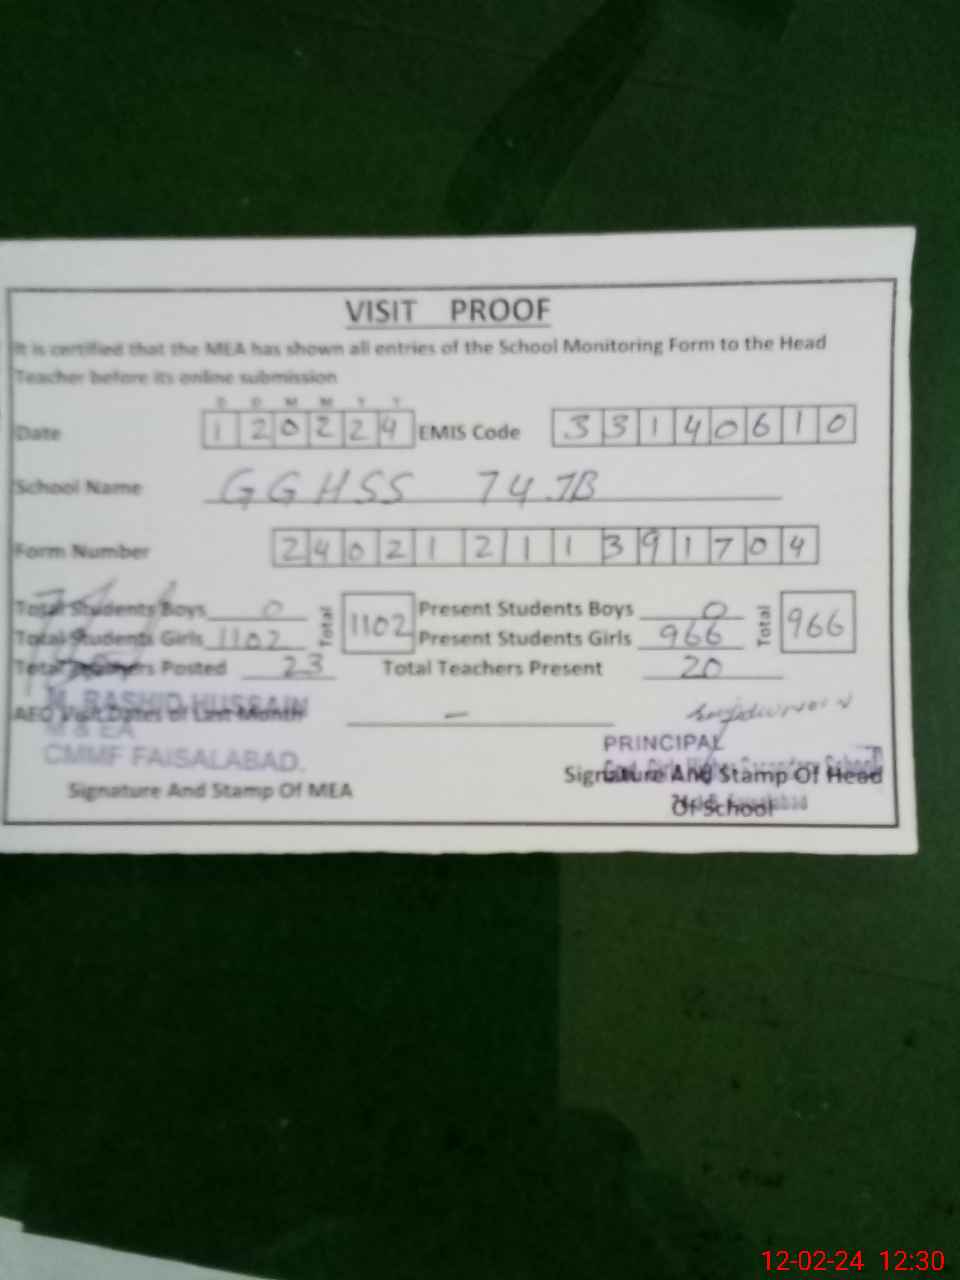 VISIT PROOF
It is certified that the MEA has shown all entries of the School Monitoring Form to the Head
Teacher before its online submission
D D M M Y Y
Date 1 2 0 2 2 4 EMIS Code 3 3 1 4 0 6 1 0
School Name GGHSS 74 JB
Form Number 2 4 0 2 1 2 1 1 3 9 1 7 0 4
Total Students Boys 0 Total 1102 Present Students Boys 0 Total 966
Total Students Girls 1102 Present Students Girls 966
Total Teachers Posted 23 Total Teachers Present 20
AEO Visit Dates of Last Month —
M. RASHID HUSSAIN
M & EA
CMMF FAISALABAD.
Signature And Stamp Of MEA
PRINCIPAL
Govt. Girls Higher Secondary School
Signature And Stamp Of Head
Of School
12-02-24 12:30